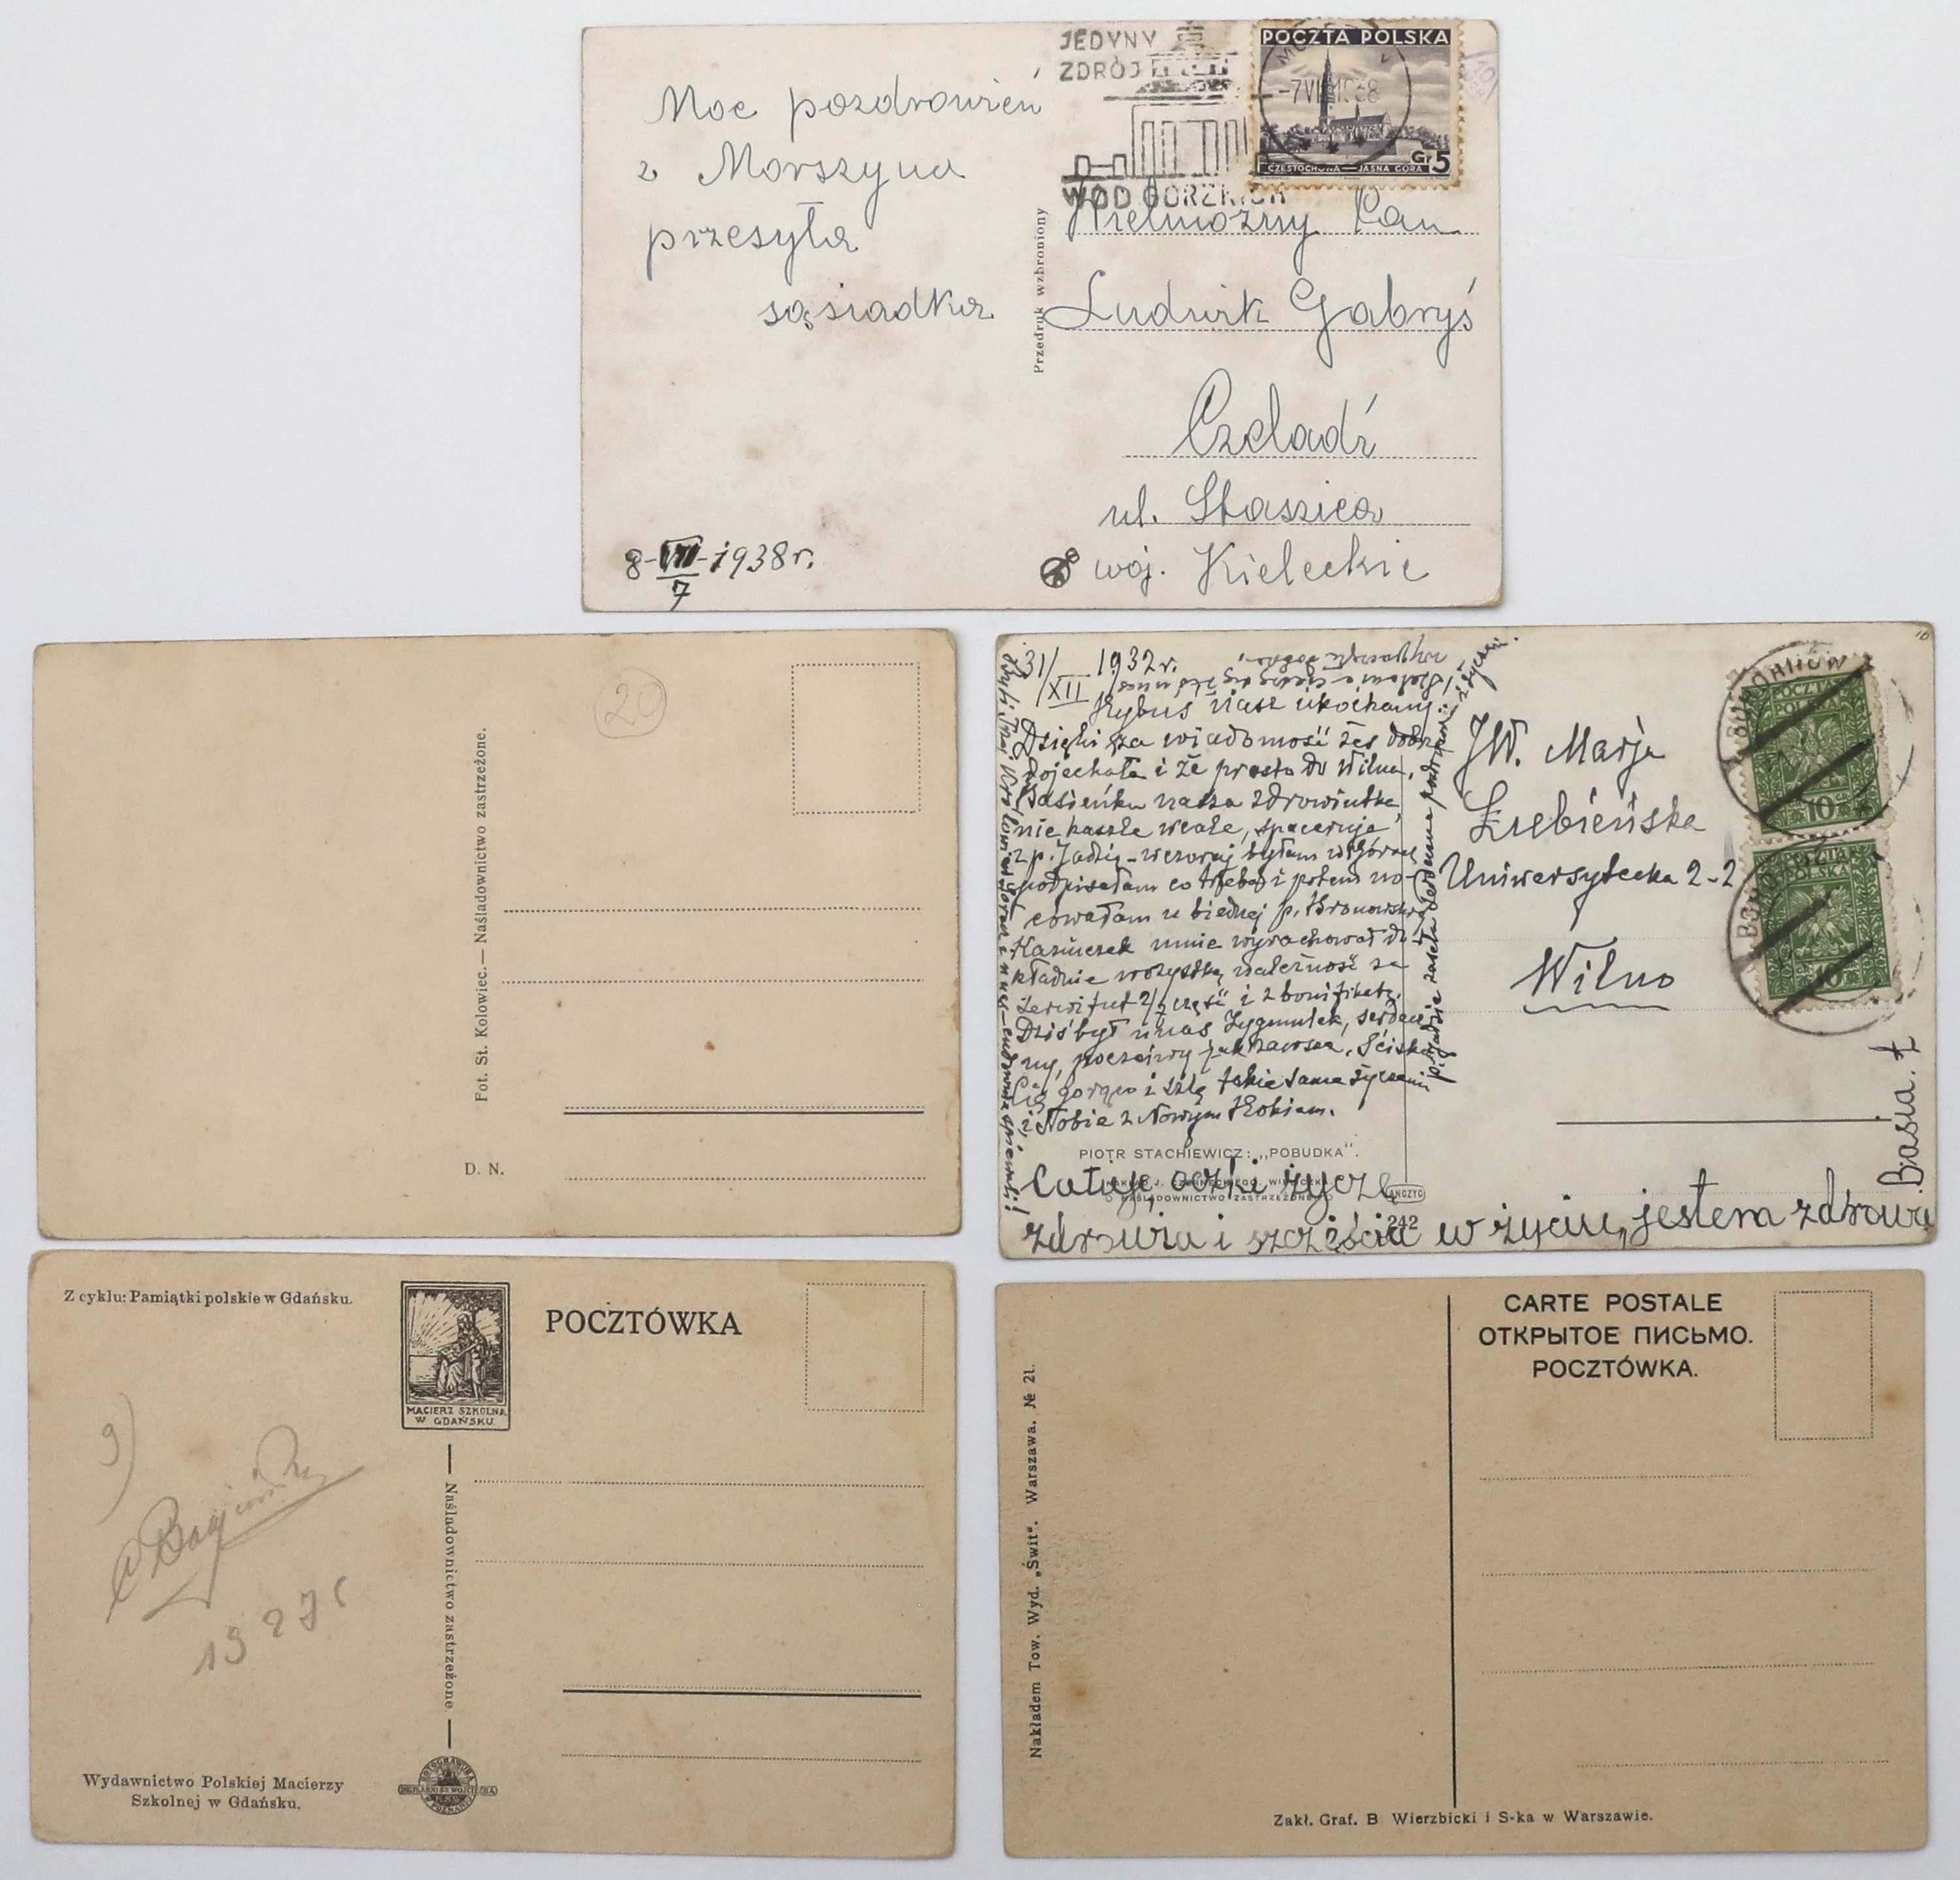 Moc pozdrowień
z Morszyna
przesyła
sąsiadka
8-VII-1938 r.
7
JEDYNY
ZDRÓJ
WÓD GORZKICH
POCZTA POLSKA
-7 VII 1938
CZĘSTOCHOWA—JASNA GÓRA Gr 5
Przedruk wzbroniony
Wielmożny Pan
Ludwik Gabryś
Czeladź
ul. Staszica
woj. Kieleckie
20
Fot. St. Kolowiec.— Naśladownictwo zastrzeżone.
D. N.
31/XII 1932 r.
nasz ukochany
Dzięki za wiadomość żeś dobrze
dojechała i że prosto do Wilna,
Basieńka nasza zdrowiutka
nie kaszle wcale, spaceruje
z p. Jadzią – wczoraj byłam
podpisałam co trzeba i potem no-
cowałam u biednej p.
Kazimierek mnie wyrachował do-
kładnie należność za
serwitut i z bonifikatą.
Dziś był u nas Zygmutek, serdecz-
ny, poczciwy jak zawsze. Ściskam
Cię gorąco i ślę takie same życzenia
i Tobie z Nowym Rokiem.
PIOTR STACHIEWICZ: „POBUDKA".
NAKŁ. J. CZERNECKIEGO, WIELICZKA
NAŚLADOWNICTWO ZASTRZEŻONE
ANCZYC
242
Całuję oczki życzę
zdrowia i szczęścia w życiu, jestem zdrowa
Basia. Ł
JW. Marja
Źrebieńska
Uniwersytecka 2-2
Wilno
POCZTA
POLSKA
10
POCZTA
POLSKA
10
Z cyklu: Pamiątki polskie w Gdańsku.
MACIERZ SZKOLNA
W GDAŃSKU.
POCZTÓWKA
9)
1927 r
Naśladownictwo zastrzeżone.
Wydawnictwo Polskiej Macierzy
Szkolnej w Gdańsku.
ROTOGRAWURA
DRUKARNI ŚW. WOJCIECHA
W POZNANIU
CARTE POSTALE
ОТКРЫТОЕ ПИСЬМО.
POCZTÓWKA.
Nakładem Tow. Wyd. „Świt". Warszawa. № 21.
Zakł. Graf. B Wierzbicki i S-ka w Warszawie.